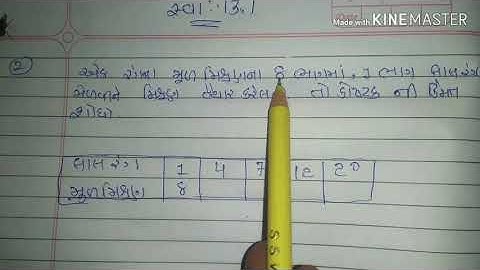 સ્વા. ૧૩.૧
Made with KINEMASTER
૨
એક રંગના મૂળ મિશ્રણના 8 ભાગમાં, 1 ભાગ લાલ રંગ
મેળવીને મિશ્રણ તૈયાર કરેલ તો કોષ્ટક ની કિંમત
શોધો
લાલ રંગ 1 4 7 12 20
મૂળ મિશ્રણ 8
SSV